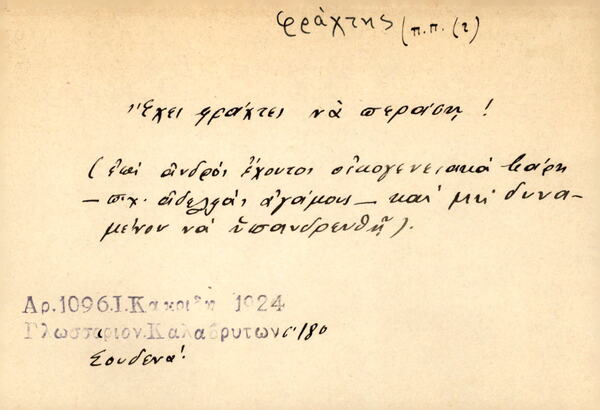 φράχτης (π.π. (τ)
"Ἔχει φράχτει νὰ περάσῃ!
(ἐπὶ ἀνδρὸς ἔχοντος οἰκογενειακὰ βάρη
— πχ. ἀδελφὰς ἀγάμους — καὶ μὴ δυνα-
μένου νὰ ὑπανδρευθῇ).
Αρ.1096.Ι.Κακριδη 1924
Γλωσσαριον.Καλαβρυτων 180
Σουδενά!